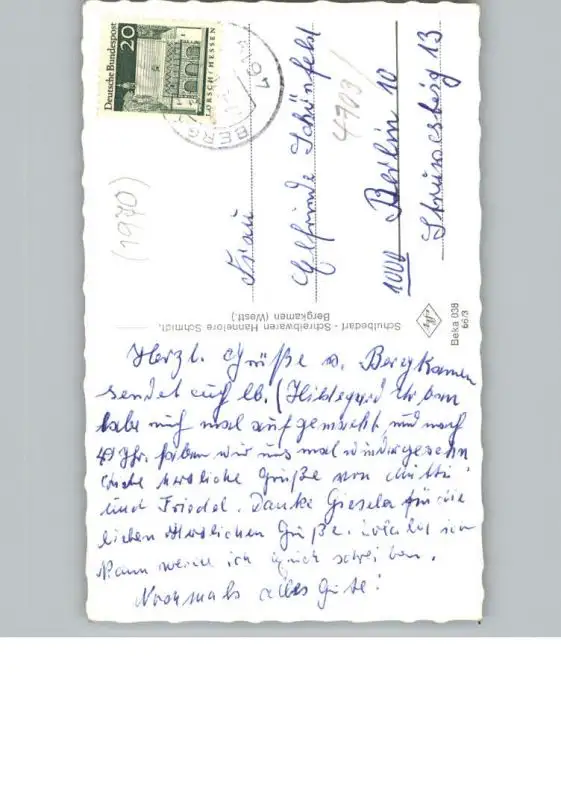 Deutsche Bundespost
20
LORSCH / HESSEN
BERG
(1970)
Frau
Elfriede Schönfeld
4703/
1000 Berlin 10
13
Schulbedarf - Schreibwaren Hannelore Schmidt,
Bergkamen (Westf.)
Beka 038
66/3
Herzl. Grüße v. Bergkamen
sendet euch lb. (Hildegard
habe mich mal aufgemacht, und nach
49 Jhr. haben wir uns mal wiedergesehn
herzliche Grüße von Mutti
und Friedel. Danke Giesela für die
lieben Grüße.
Dann werde ich Euch schreiben.
Nochmals alles Gute!